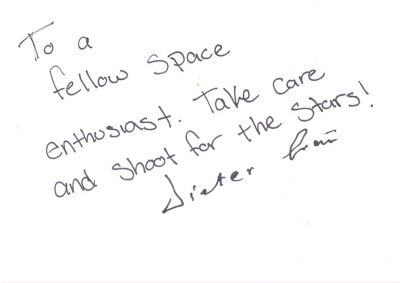 To a
fellow space
enthusiast. Take care
and shoot for the stars!
Dieter